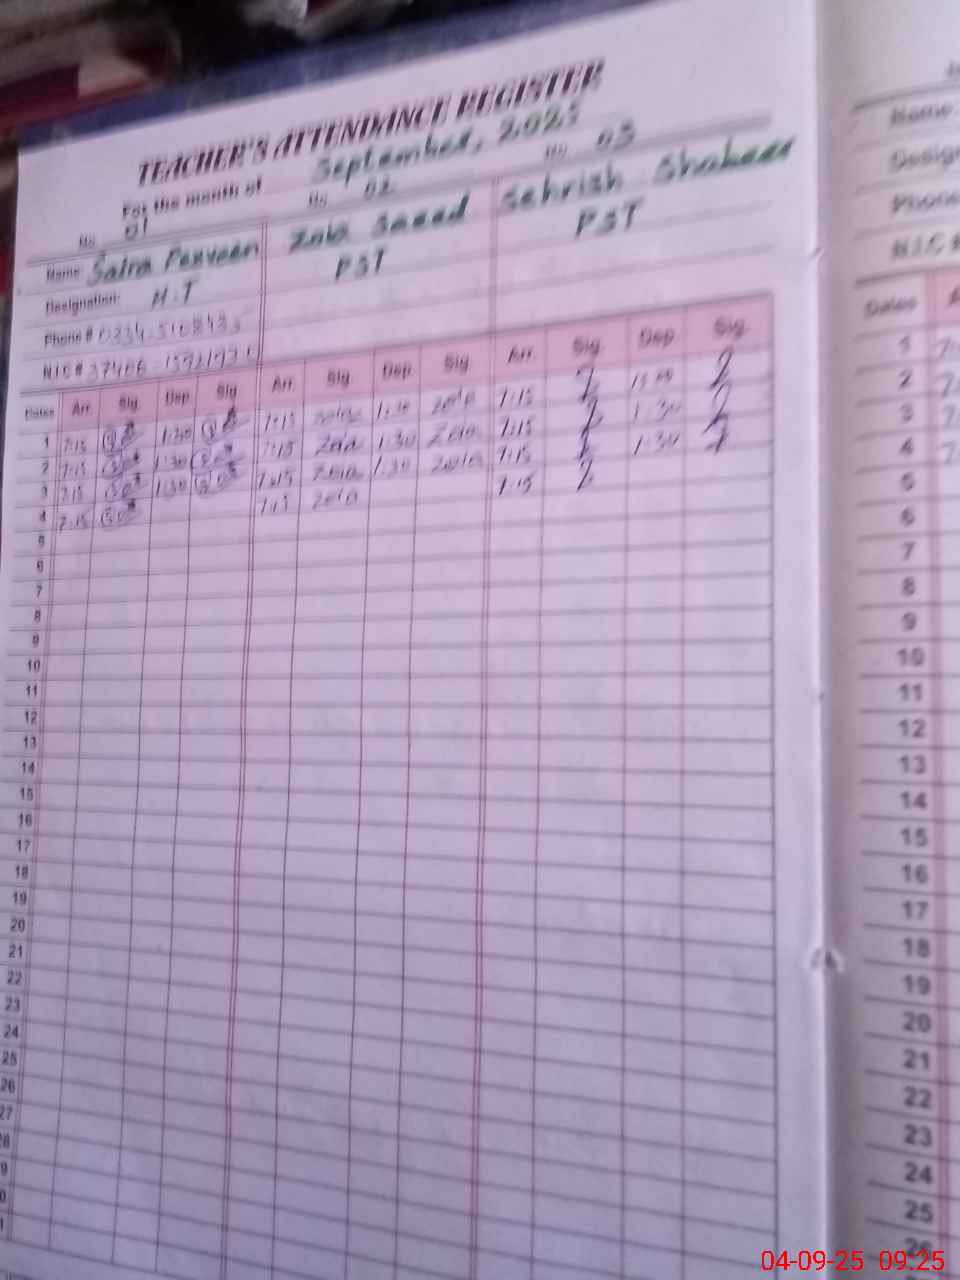 TEACHER'S ATTENDANCE REGISTER
For the month of September, 2025
No 01 No 02 No 03
Name: Saira Perveen Zoia Saeed Sehrish Shaheen
Designation: H.T PST PST
Phone #
N.I.C #
Dates Arr. Sig Dep Sig Arr. Sig Dep Sig. Arr. Sig. Dep Sig.
1 7:15 1:30 7:15 Zoia 1:30 Zoia 7:15
2 7:15 1:30 7:15 Zoia 1:30 Zoia 7:15 1:30
3 7:15 1:30 7:15 Zoia 1:30 Zoia 7:15 1:30
4 7:15 7:15 Zoia 7:15
5
6
7
8
9
10
11
12
13
14
15
16
17
18
19
20
21
22
23
24
25
26
27
Name
Phone
Dates
1
2
3
4
5
6
7
8
9
10
11
12
13
14
15
16
17
18
19
20
21
22
23
24
25
26
04-09-25 09:25